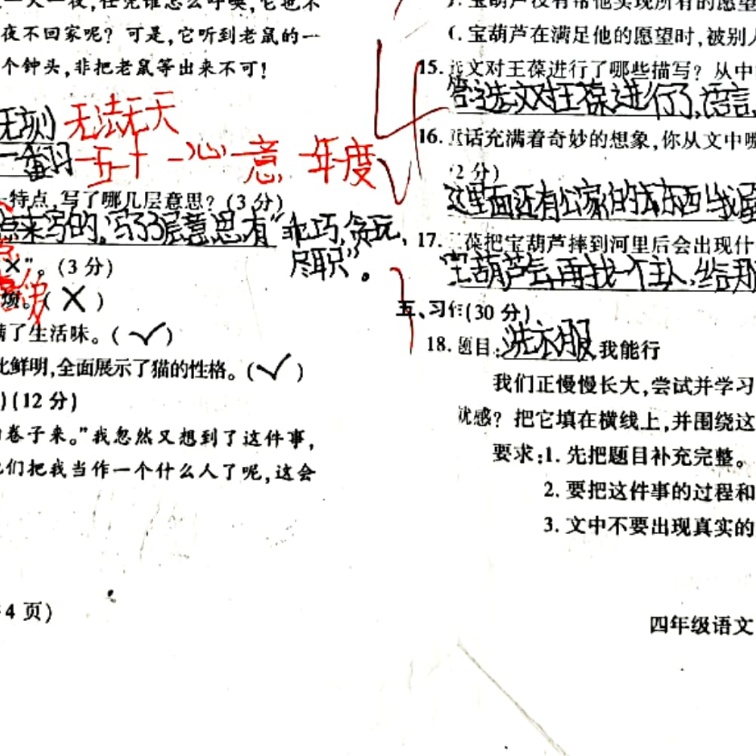 夜不回家呢？可是，它听到老鼠的一
个钟头，非把老鼠等出来不可！
无法无天
一心一意 年度
特点，写了哪几层意思？(3分)
点来写的，写了3层意思，有“乖巧，贪玩，
尽职”。
×”。(3分)
(×)
满了生活味。(✓)
比鲜明，全面展示了猫的性格。(✓)
)(12分)
卷子来。”我忽然又想到了这件事，
们把我当作一个什么人了呢，这会
4页)
宝葫芦没有帮他实现所有的愿望
C. 宝葫芦在满足他的愿望时，被别人
15. 选文对王葆进行了哪些描写？从中
答：选文对王葆进行了语言
16. 童话充满着奇妙的想象，你从文中哪
2分)
这里面还有公家的东西
17. 葆把宝葫芦摔到河里后会出现什
宝葫芦会再找一个主人，给
五、习作(30分)
18. 题目：洗衣服我能行
我们正慢慢长大，尝试并学习
就感？把它填在横线上，并围绕这
要求：1. 先把题目补充完整。
2. 要把这件事的过程和
3. 文中不要出现真实的
四年级语文